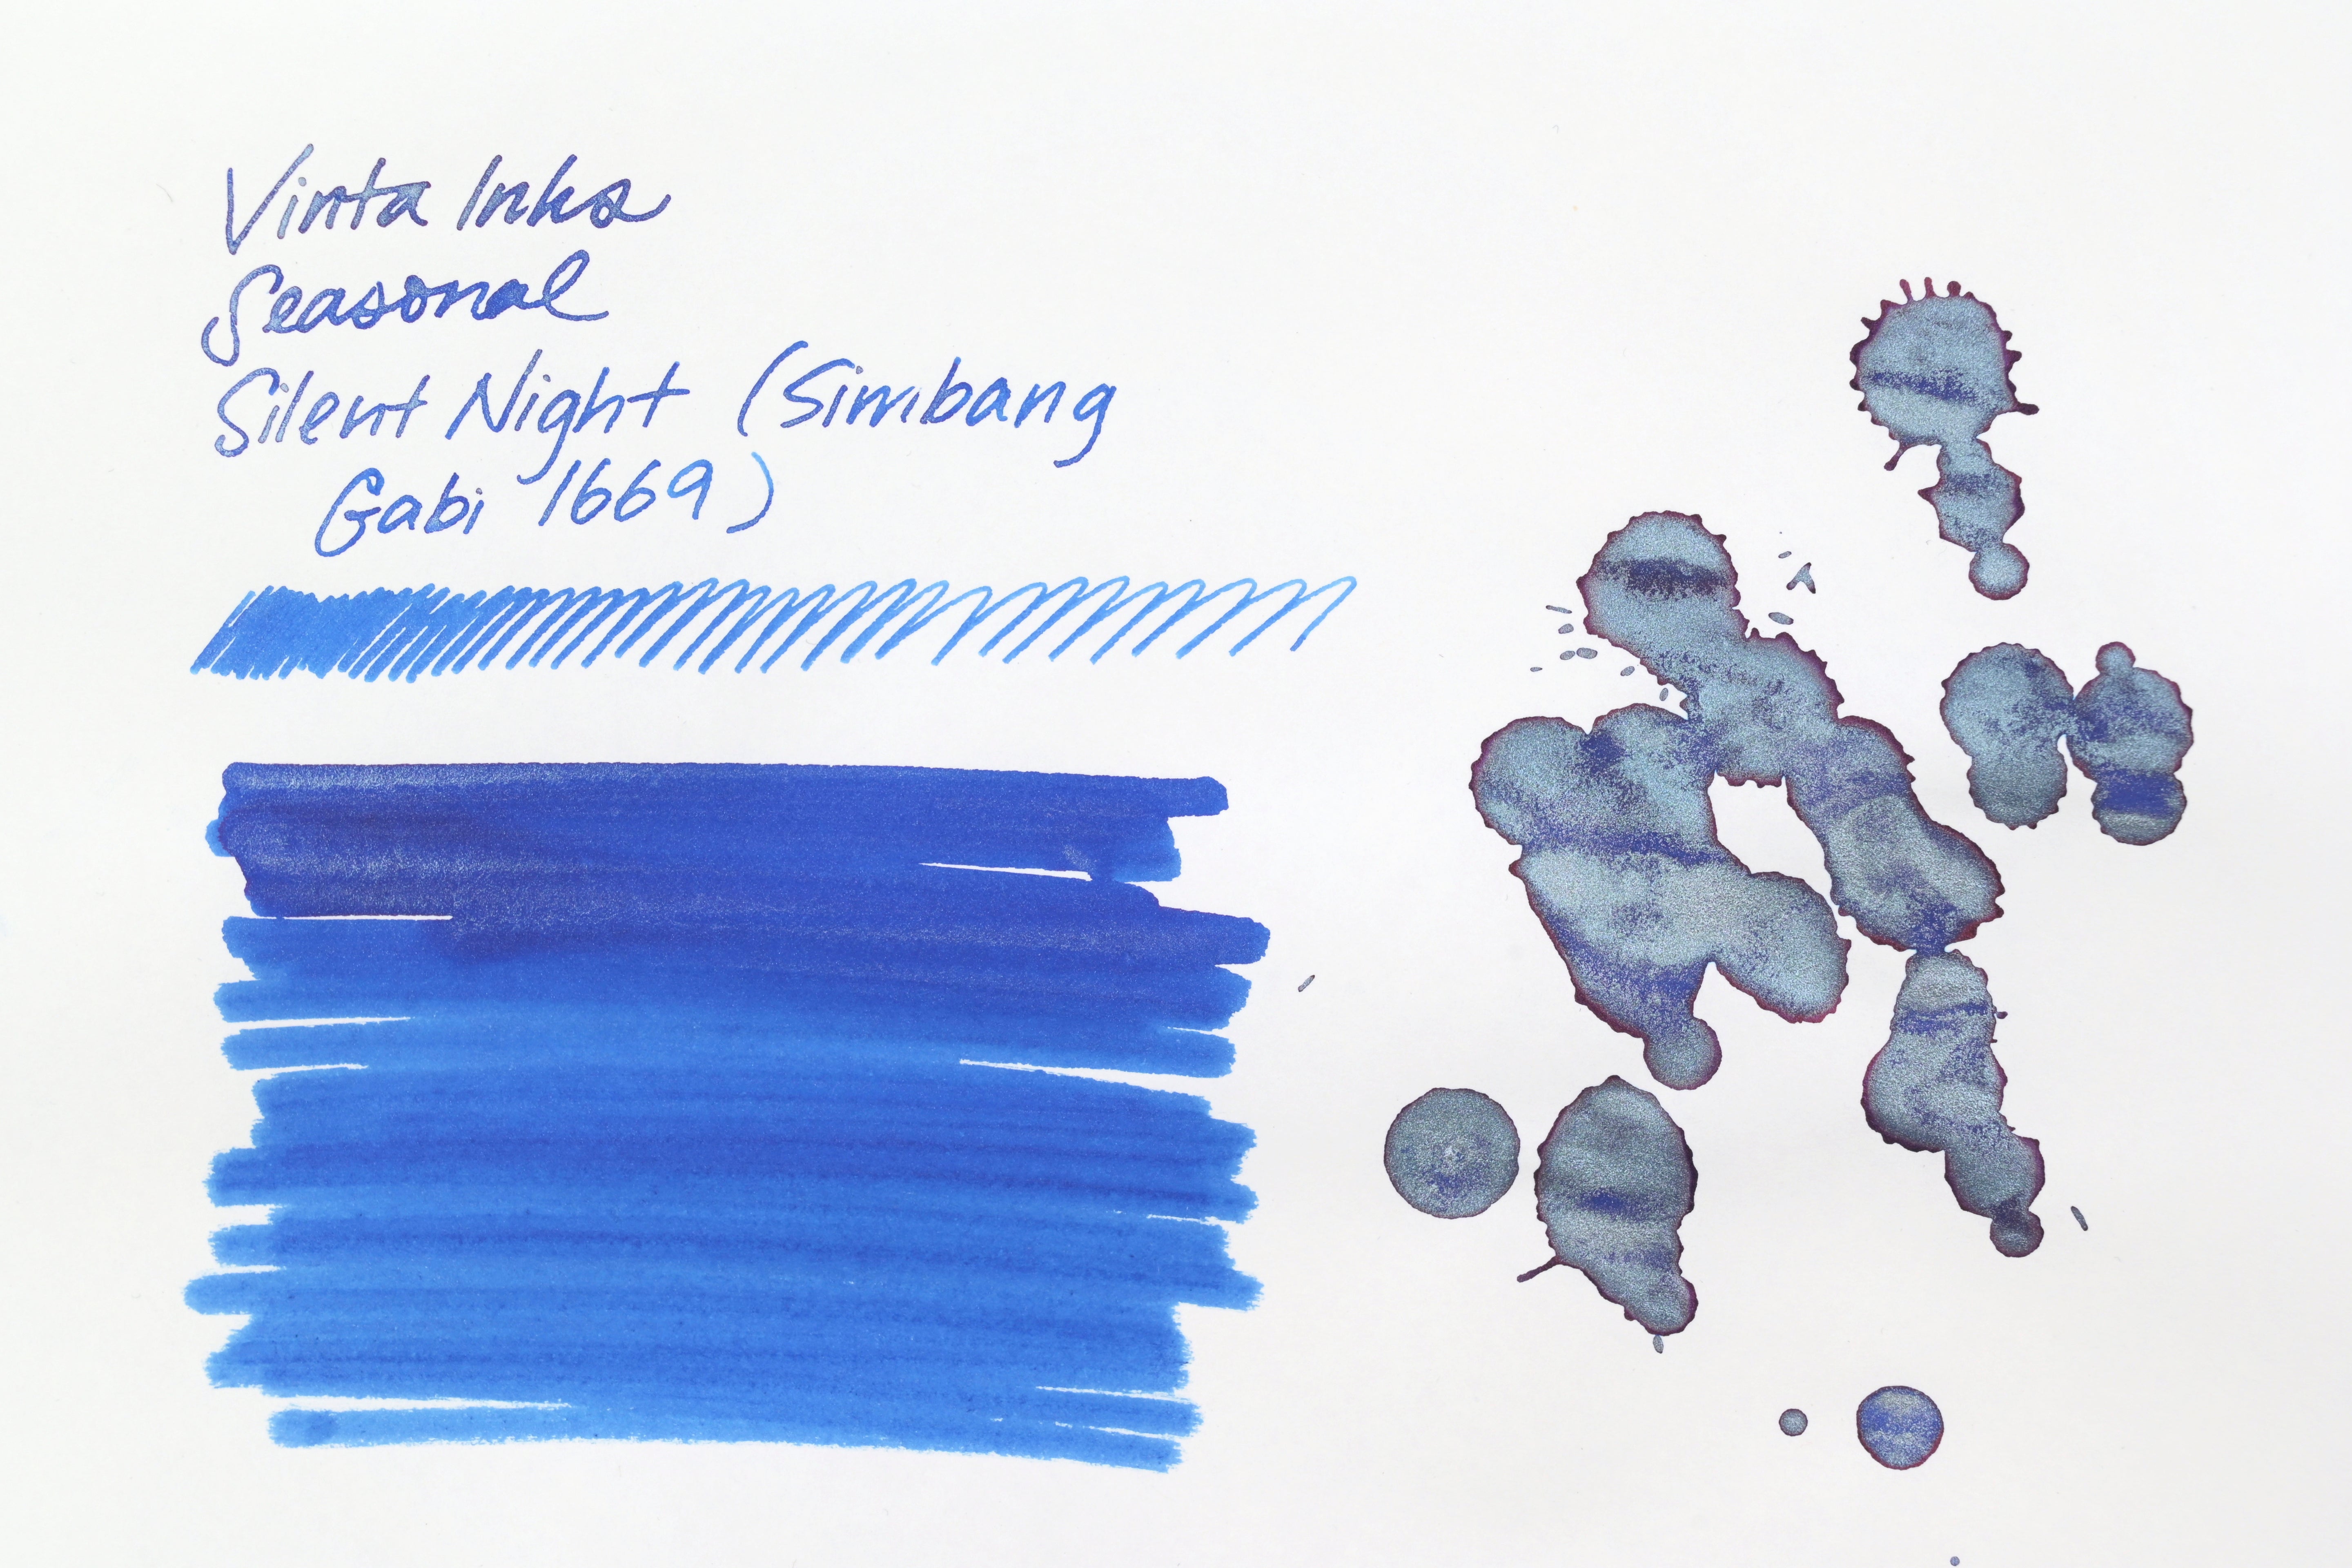 Vinta Inks
Seasonal
Silent Night (Simbang
Gabi 1669)